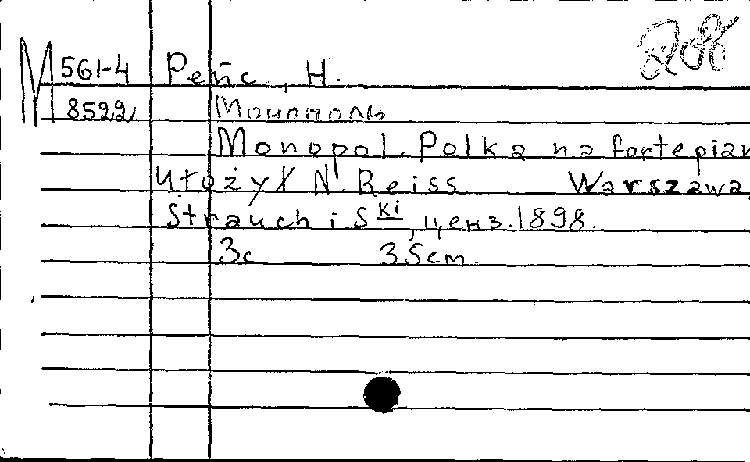 М 561-4 Рейс, Н.
8522 Монополь
Monopol. Polka na fortepian
ułożył N. Reiss Warszawa,
Strauch i Ski, ценз. 1898.
3с 35cm